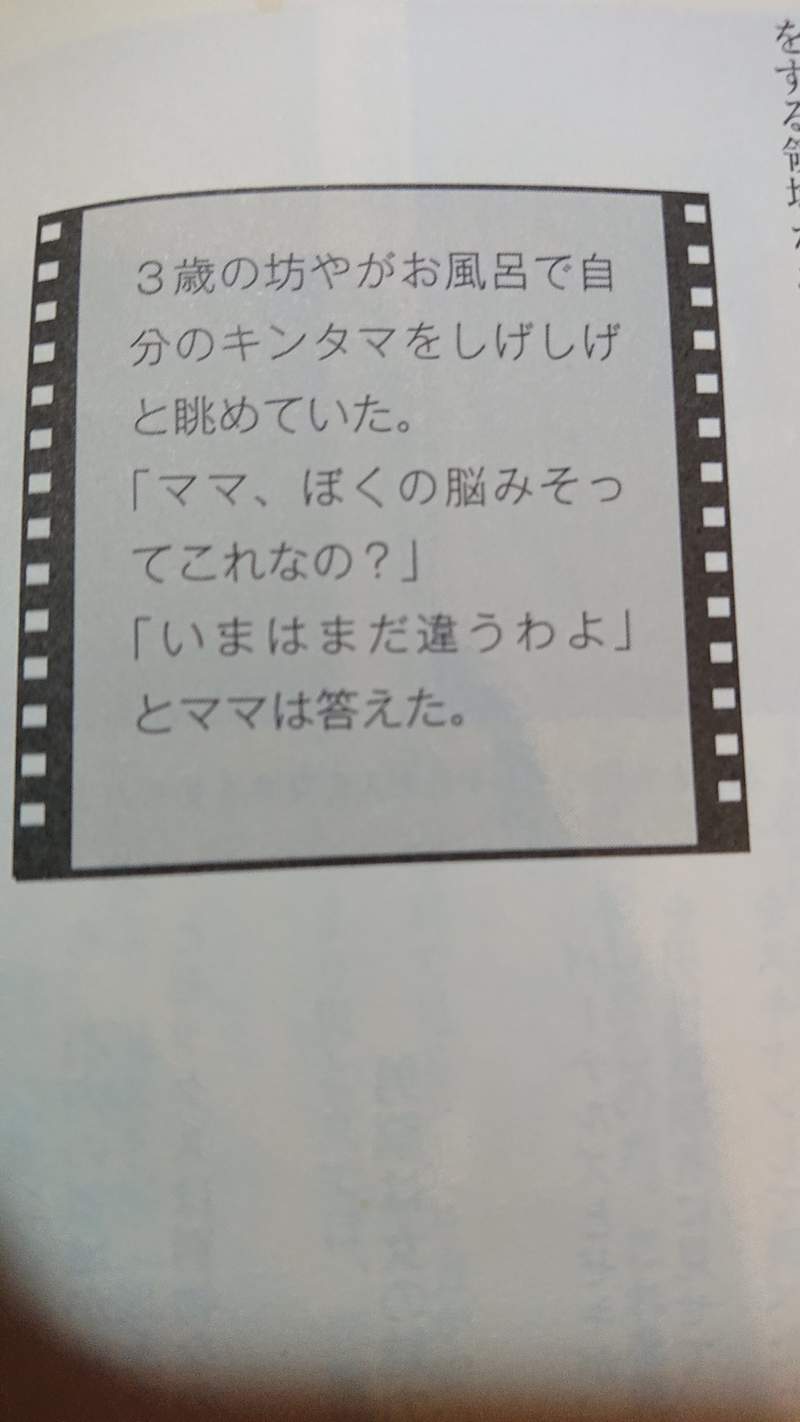 3歳の坊やがお風呂で自
分のキンタマをしげしげ
と眺めていた。
「ママ、ぼくの脳みそっ
てこれなの？」
「いまはまだ違うわよ」
とママは答えた。
をする